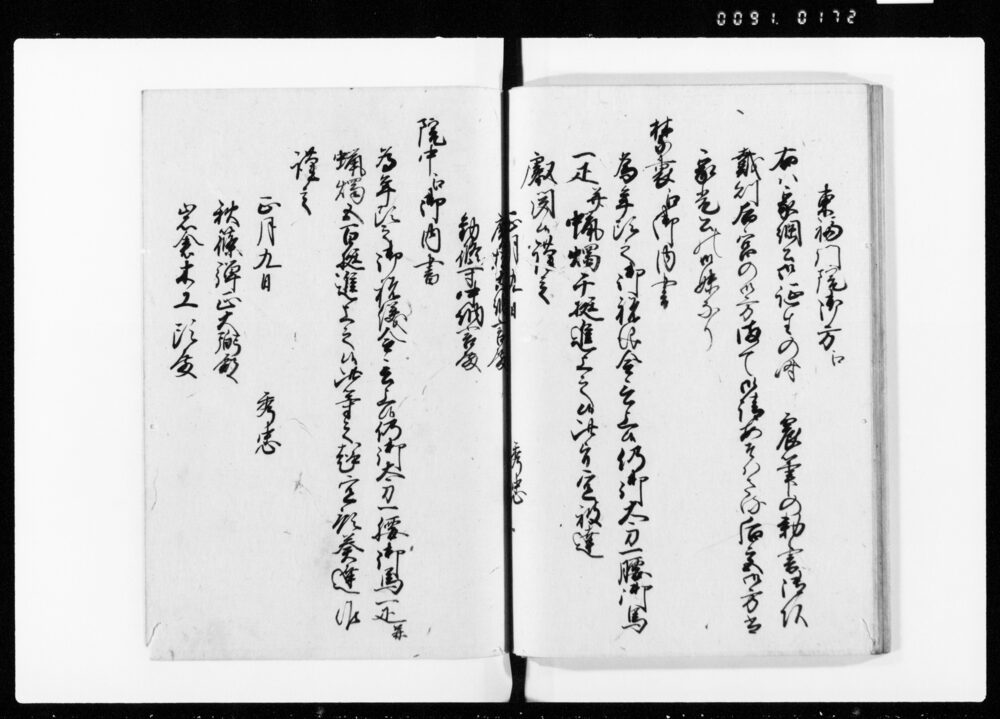 0091.0172
東福門院御方江
右ハ家綱公御誕生の時 宸筆の勅書御頂
戴則后宮の御方
家光公の御妹なり
禁裏江御内書
為年頭之御祝儀令言上候仍御太刀一腰御馬
一疋并蝋燭千挺進上之候此旨宜被達
叡聞候謹言
正月九日 秀忠
勧修寺中納言殿
院中江御内書
為年頭之御祝儀令言上候仍御太刀一腰御馬一疋并
蝋燭五百挺進上之候此等之趣宜預奏達候
謹言
正月九日
秀忠
秋篠弾正大弼殿
岩倉木工頭殿